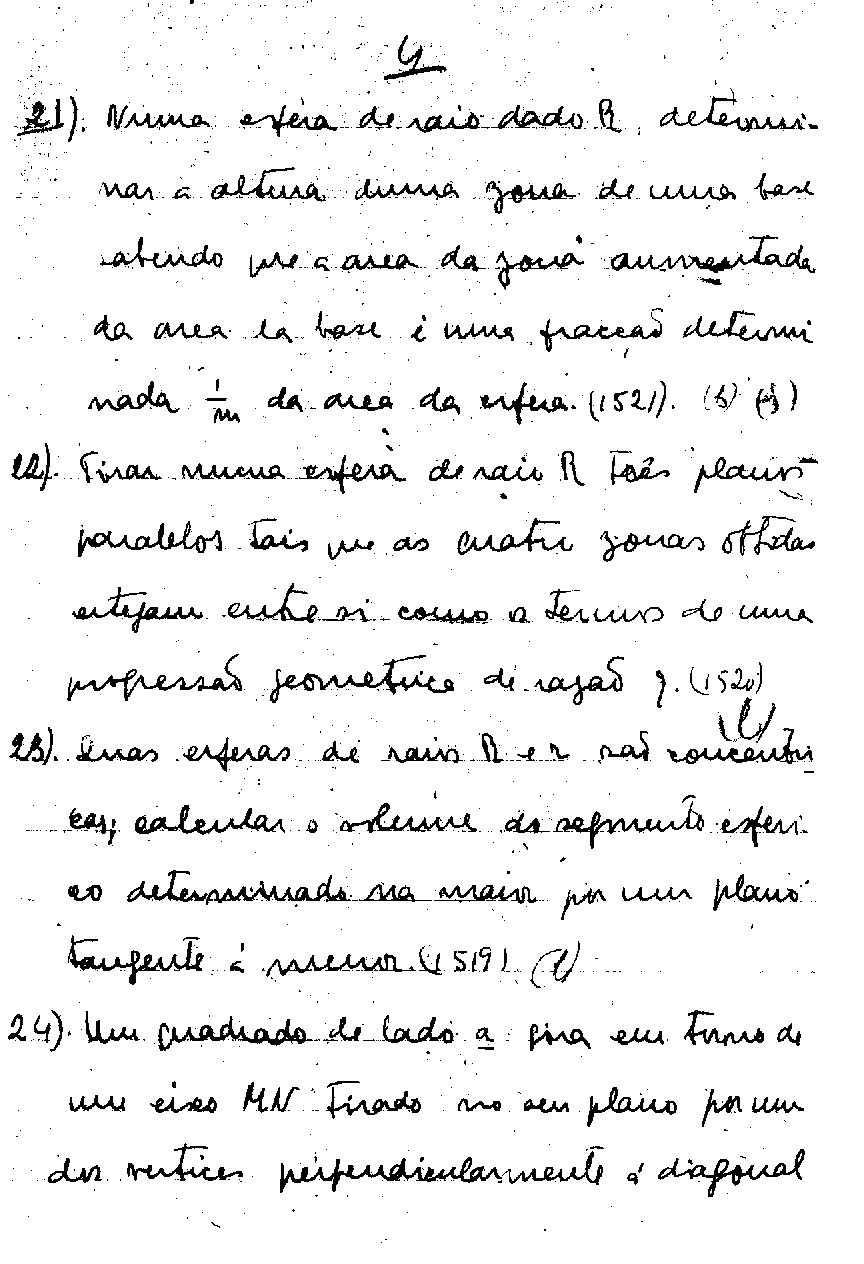 4
21). Numa esfera de raio dado R, determi-
nar a altura duma zona de uma base
sabendo que a area da zona aumentada
da area da base é uma fracção determi
nada 1/m da area da esfera. (1521).
22). Tirar numa esfera de raio R três planos
paralelos tais que as quatro zonas obtidas
estejam entre si como os termos de uma
progressão geometrica de razão q. (1520)
23). Duas esferas de raios R e r são concentri
cas; calcular o volume do segmento esferi-
co determinado na maior por um plano
tangente á menor. (1519)
24). Um quadrado de lado a gira em torno de
um eixo MN tirado no seu plano por um
dos vertices perpendicularmente á diagonal